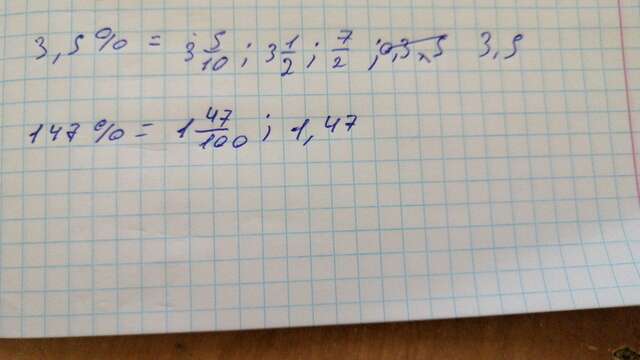 3,5% = 3 5/10 ; 3 1/2 ; 7/2 ; 3,5
147% = 1 47/100 ; 1,47